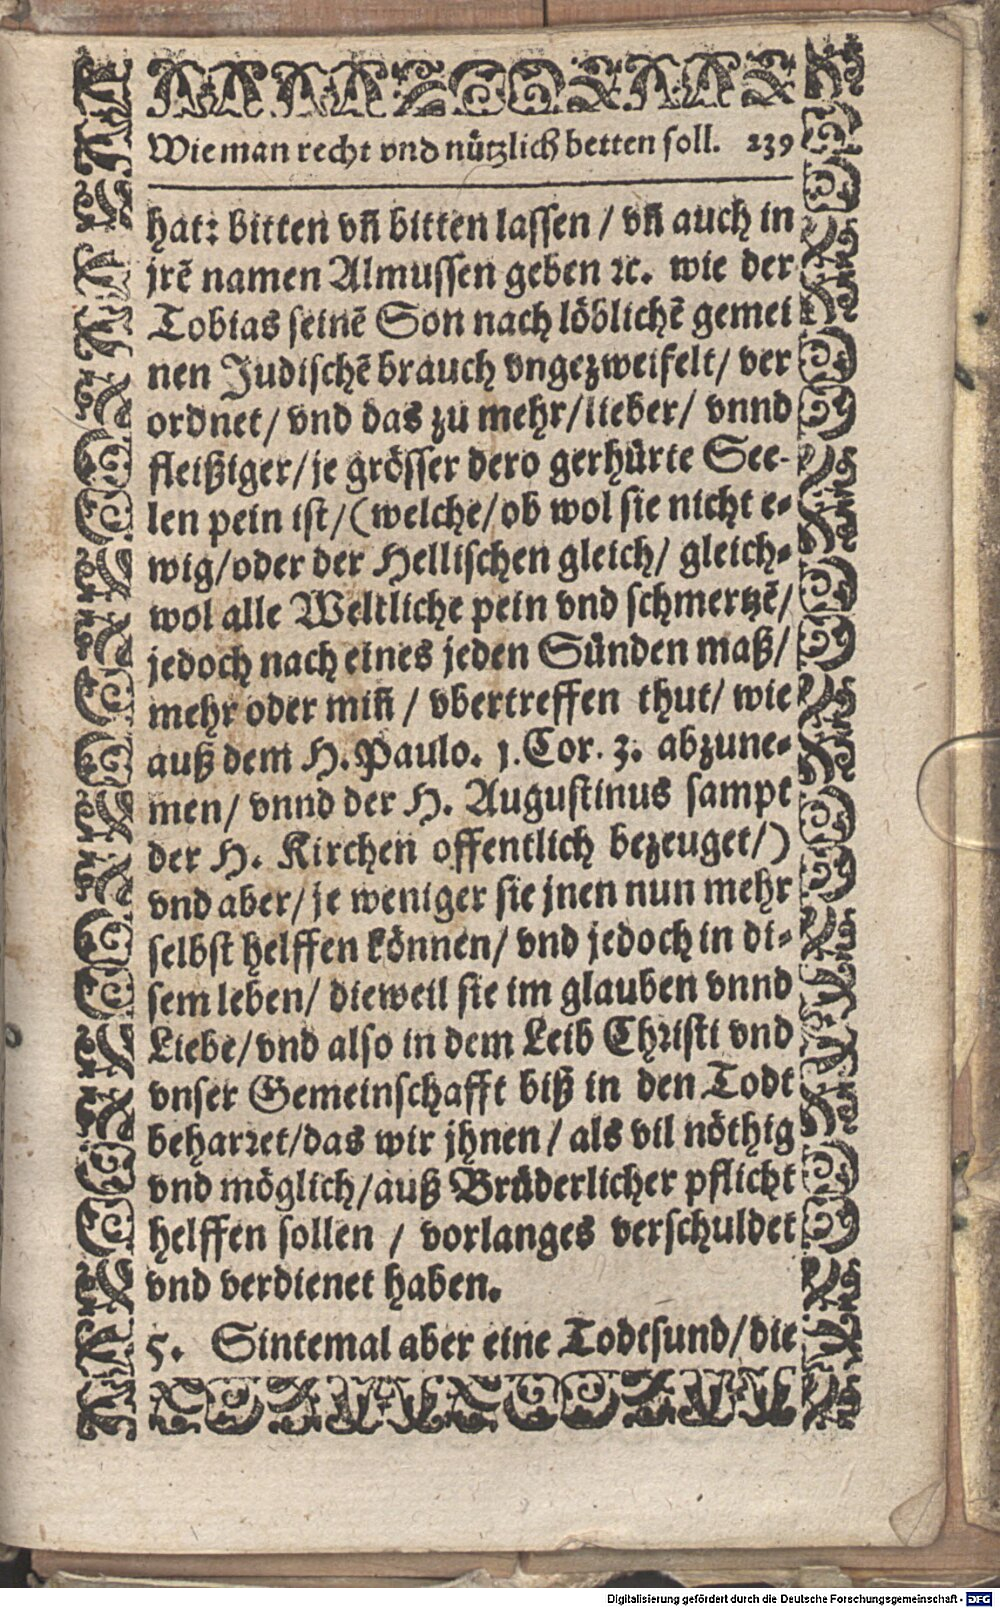 Wie man recht vnd nützlich betten soll. 239
hat: bitten vñ bitten lassen / vñ auch in
jrē namen Almussen geben ꝛc. wie der
Tobias seinē Son nach löblichē gemei
nen Judischē brauch vngezweifelt/ ver
ordnet/ vnd das zu mehr/lieber/ vnnd
fleißiger/je grösser dero gerhürte See-
len pein ist/(welche/ob wol sie nicht e-
wig/oder der Hellischen gleich/ gleich-
wol alle Weltliche pein vnd schmertzē/
jedoch nach eines jeden Sünden maß/
mehr oder miñ / vbertreffen thut/ wie
auß dem H. Paulo. 1. Cor. 3. abzune-
men/ vnnd der H. Augustinus sampt
der H. Kirchen offentlich bezeuget/)
vnd aber/ je weniger sie jnen nun mehr
selbst helffen können/ vnd jedoch in di-
sem leben/ dieweil sie im glauben vnnd
Liebe/vnd also in dem Leib Christi vnd
vnser Gemeinschafft biß in den Todt
beharret/das wir jhnen / als vil nöthig
vnd möglich/auß Brüderlicher pflicht
helffen sollen / vorlanges verschuldet
vnd verdienet haben.
5. Sintemal aber eine Todtsund/die
Digitalisierung gefördert durch die Deutsche Forschungsgemeinschaft - DFG